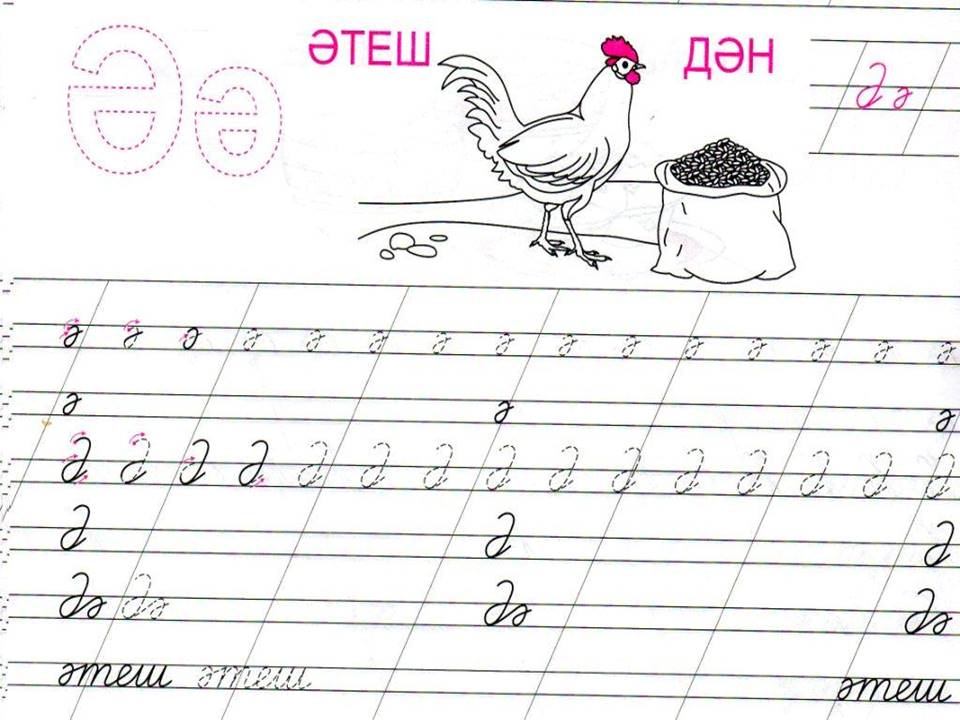 Әә ӘТЕШ ДӘН Әә
ә ә ә ә ә ә ә ә ә ә ә ә ә ә ә
ә ә ә
Ә Ә Ә Ә Ә Ә Ә Ә Ә Ә Ә Ә Ә Ә Ә
Ә Ә Ә
Әә Әә Әә Әә
әтеш әтеш әтеш